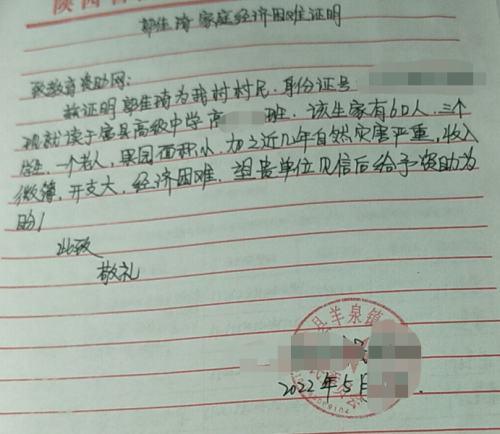 陕西省
郭佳琦家庭经济困难证明
致教育资助网:
兹证明郭佳琦为我村村民,身份证号
现就读于富县高级中学高 班,该生家有6口人,三个
学生,一个老人,果园面积小,加之近几年自然灾害严重,收入
微薄,开支大,经济困难,望贵单位见信后给予资助为
盼!
此致
敬礼
县羊泉镇
2022年5月